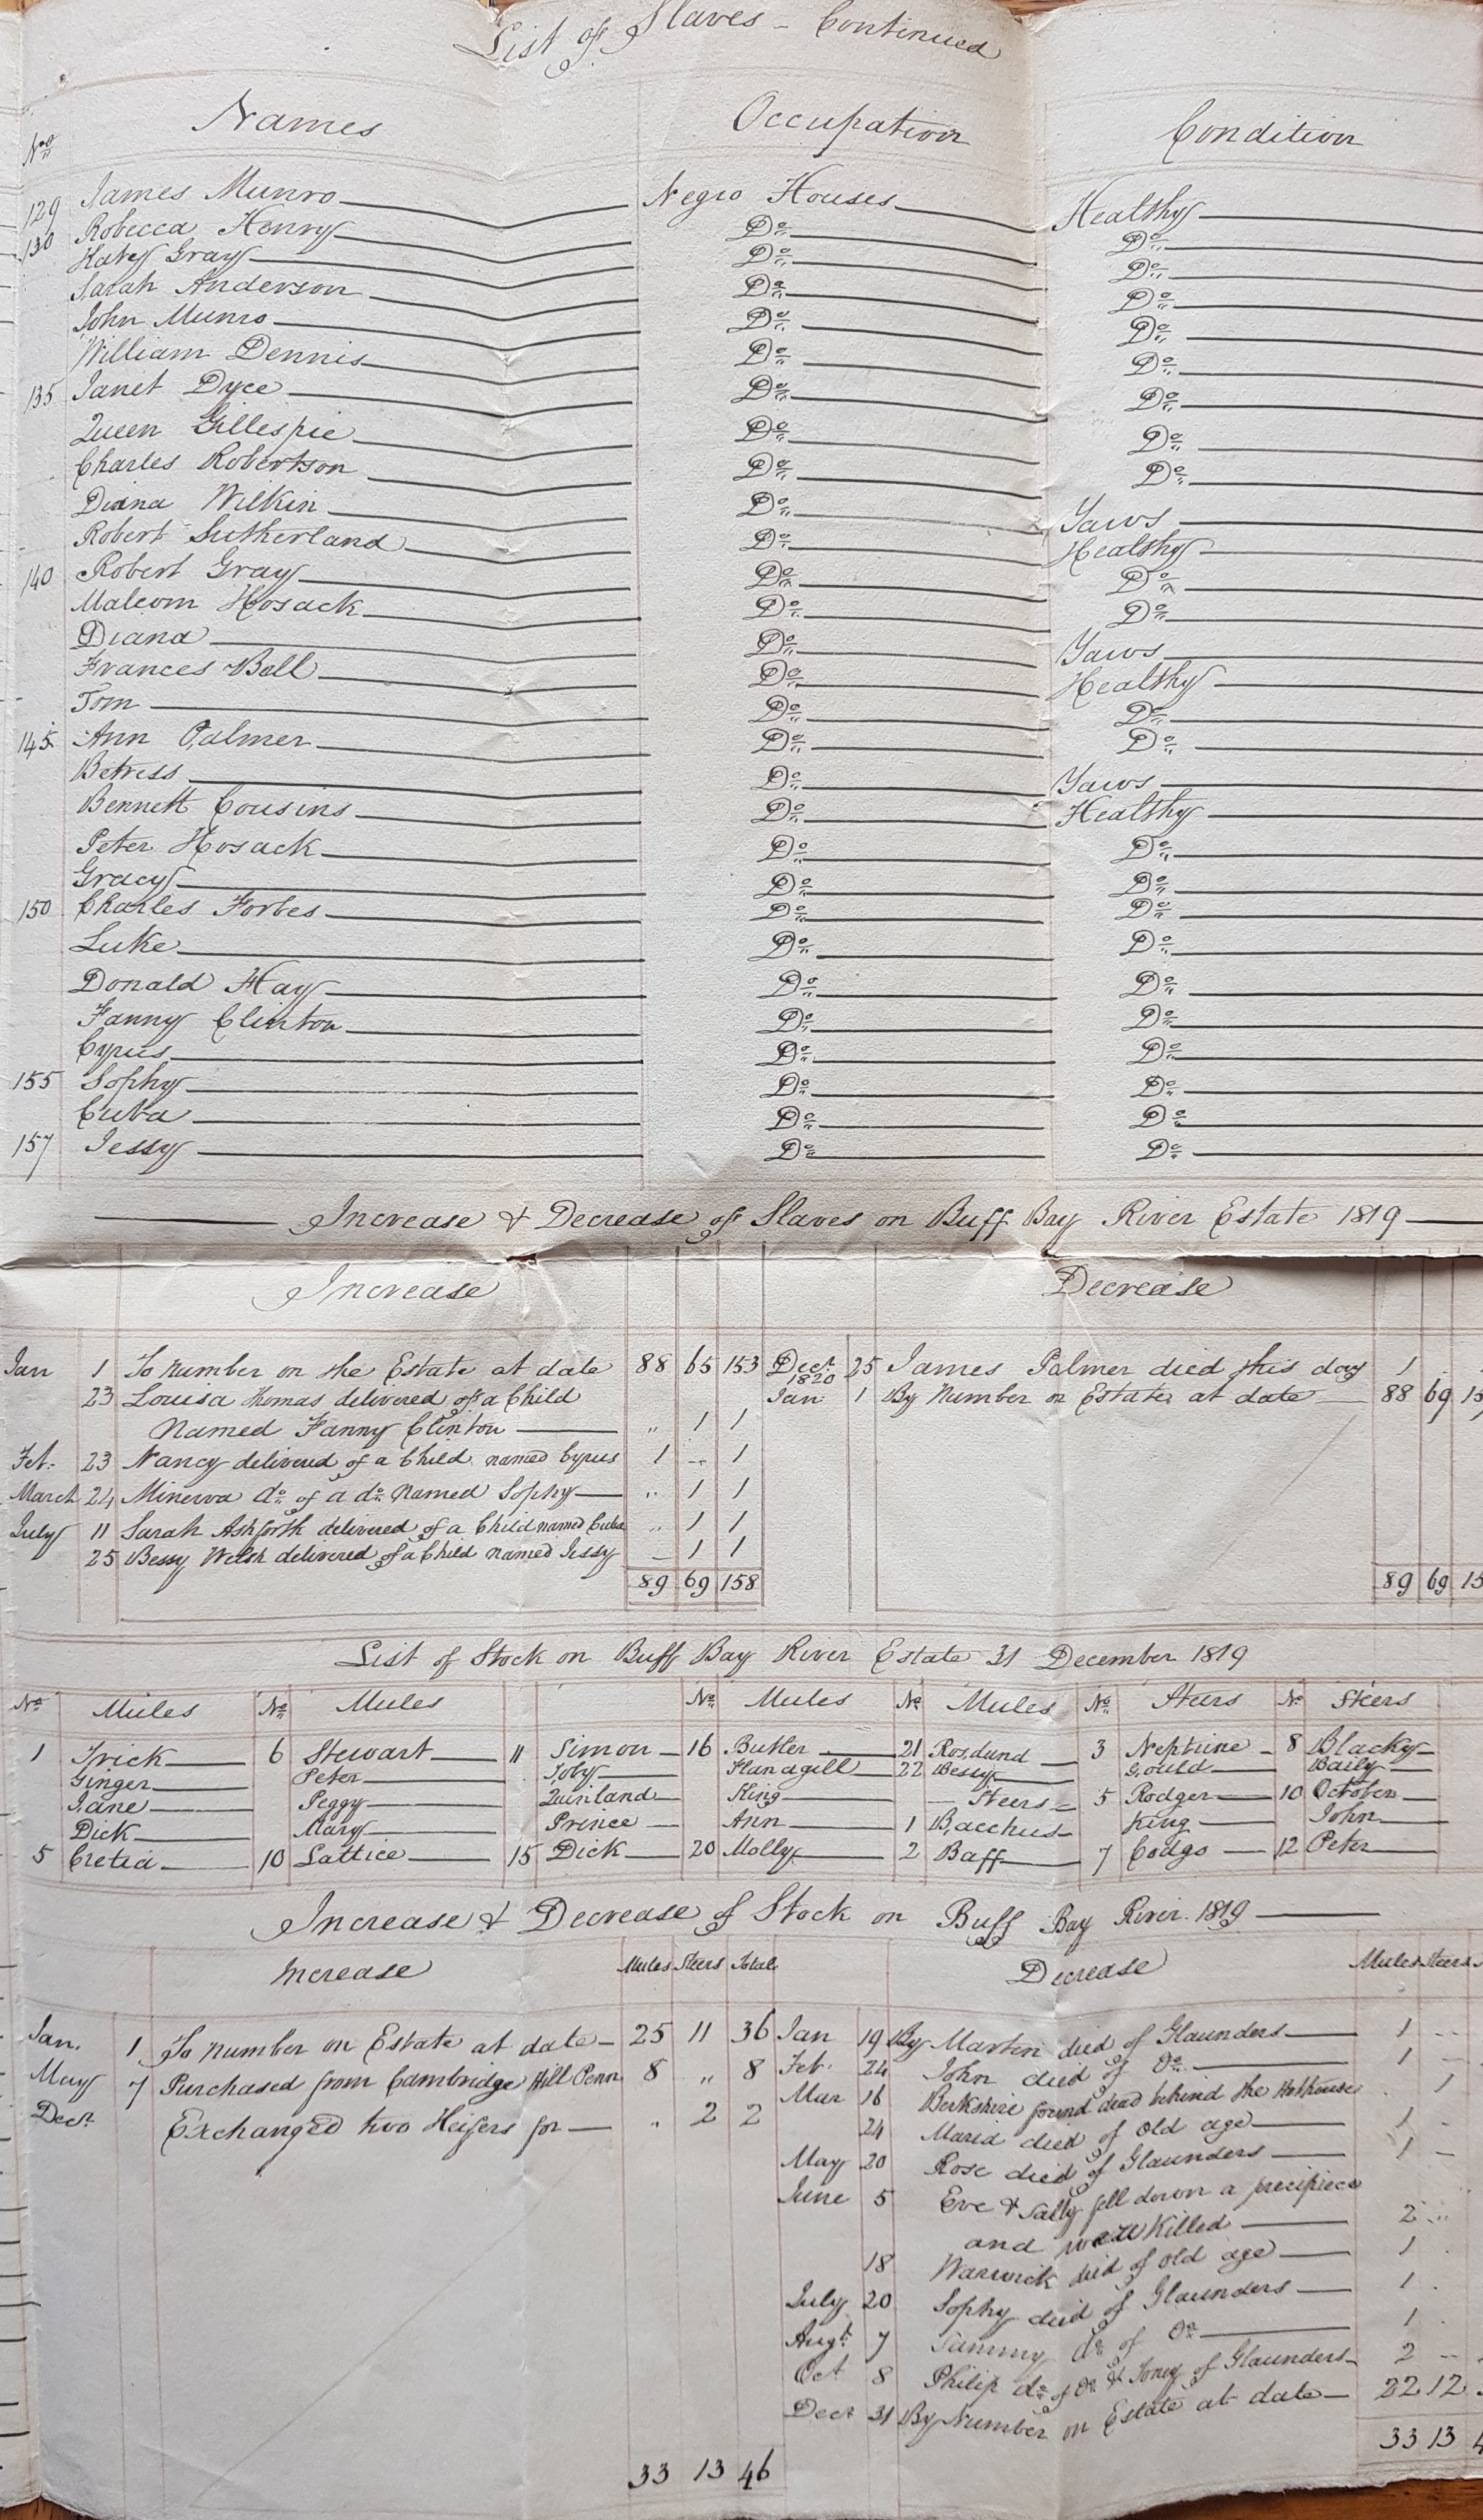 List of Slaves - Continued
No. Names Occupation Condition
129 James Munro Negro Houses Healthy
130 Robecca Henry Do. Do.
Katy Gray Do. Do.
Sarah Anderson Do. Do.
John Munro Do. Do.
William Dennis Do. Do.
135 Janet Dyce Do. Do.
Queen Gillespie Do. Do.
Charles Robertson Do. Do.
Diana Wilkin Do. Yaws
Robert Sutherland Do. Healthy
140 Robert Gray Do. Do.
Malcom Hosack Do. Do.
Diana Do. Yaws
Frances Bell Do. Healthy
Tom Do. Do.
145 Ann Palmer Do. Do.
Betress Do. Yaws
Bennett Cousins Do. Healthy
Peter Hosack Do. Do.
Gracy Do. Do.
150 Charles Forbes Do. Do.
Luke Do. Do.
Donald Hay Do. Do.
Fanny Clinton Do. Do.
Cyrus Do. Do.
155 Sophy Do. Do.
Cuba Do. Do.
157 Jessy Do. Do.
Increase & Decrease of Slaves on Buff Bay River Estate 1819
Increase Decrease
Jan 1 To Number on the Estate at date 88 65 153 Decr. 25 James Palmer died this day 1
1820
23 Louisa Thomas delivered of a Child Jan: 1 By Number on Estate at date 88 69 15
Named Fanny Clinton " 1 1
Feb. 23 Nancy delivered of a Child named Cyrus 1 - 1
March 24 Minerva do. of a do. Named Sophy " 1 1
July 11 Sarah Ashforth delivered of a Child named Cuba " 1 1
25 Bessy Welsh delivered of a Child named Jessy - 1 1
89 69 158 89 69 15
List of Stock on Buff Bay River Estate 31 December 1819
No. Mules No. Mules No. Mules No. Mules No. Steers No. Steers
1 Trick 6 Stewart 11 Simon 16 Butler 21 Rosdund 3 Neptune 8 Blacky
Ginger Peter Toby Flandgill 22 Bessy Gould Baily
Jane Peggy Quinland King Steers 5 Rodger 10 October
Dick Mary Prince Ann 1 Bacchus King John
5 Cretia 10 Lattice 15 Dick 20 Molly 2 Baff 7 Codgo 12 Peter
Increase & Decrease of Stock on Buff Bay River. 1819
Increase Mules Steers Total Decrease Mules Steers
Jan. 1 To Number on Estate at date 25 11 36 Jan 19 By Martin died of Glaunders 1 --
May 7 Purchased from Cambridge Hill Penn 8 " 8 Feb. 24 John died of Do. 1 --
Decr. Exchanged two Heifers for " 2 2 Mar 16 Berkshire found dead behind the Hothouse . 1
24 Maria died of Old age 1 -
May 20 Rose died of Glaunders 1 -
June 5 Eve & Sally fell down a precipiece
and were Killed 2 "
18 Warwick died of old age 1 .
July 20 Sophy died of Glaunders 1 .
Augt. 7 Sammy do. of Do. 1 .
Oct 8 Philip do. of Do. & Toney of Glaunders 2 --
Decr 31 By Number on Estate at date 22 12
33 13 46 33 13 4